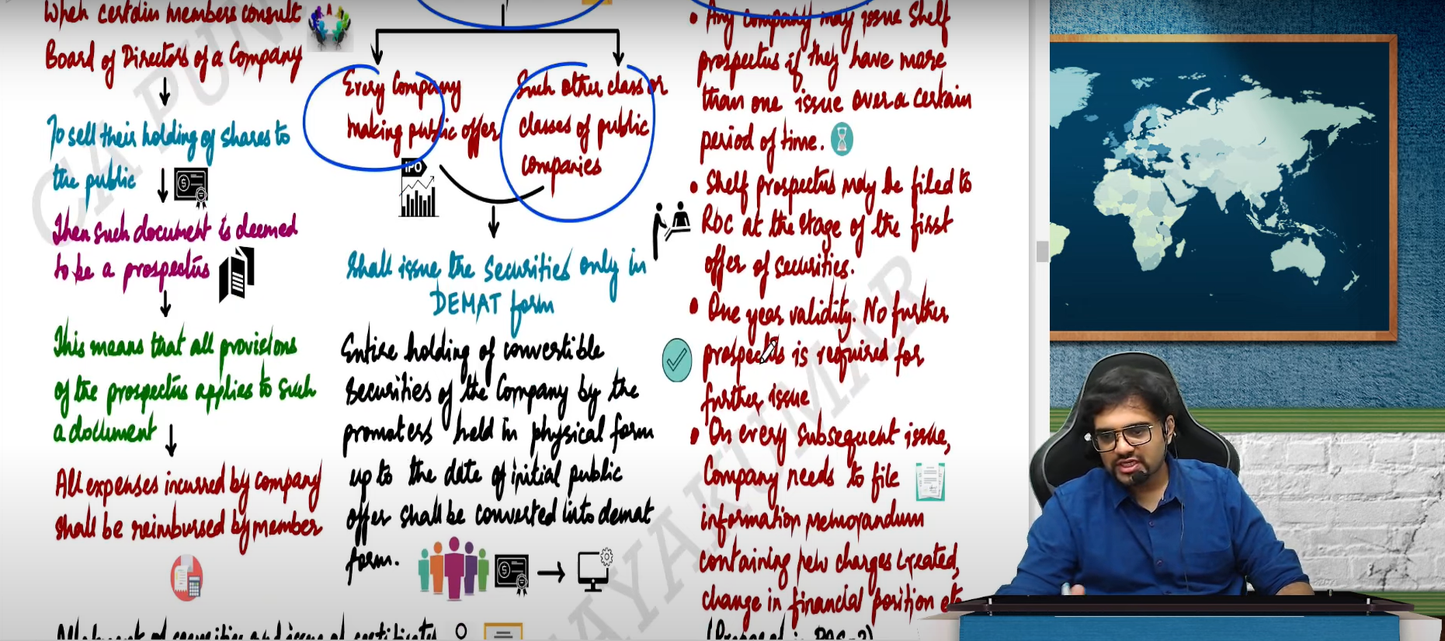 When certain members consult
Board of Directors of a Company
To sell their holding of shares to
the public
Then such document is deemed
to be a prospectus
This means that all provisions
of the prospectus applies to such
a document
All expenses incurred by company
shall be reimbursed by member
Every Company
making public offer
Such other class or
classes of public
companies
IPO
Shall issue the securities only in
DEMAT form
Entire holding of convertible
securities of the Company by the
promoters held in physical form
up to the date of initial public
offer shall be converted into demat
form.
• Any company may issue Shelf
prospectus if they have more
than one issue over a certain
period of time.
• Shelf prospectus may be filed to
RoC at the stage of the first
offer of securities.
• One year validity. No further
prospectus is required for
further issue
• On every subsequent issue,
Company needs to file
information Memorandum
containing new charges created,
change in financial position etc
Allotment of securities and issue of certificates